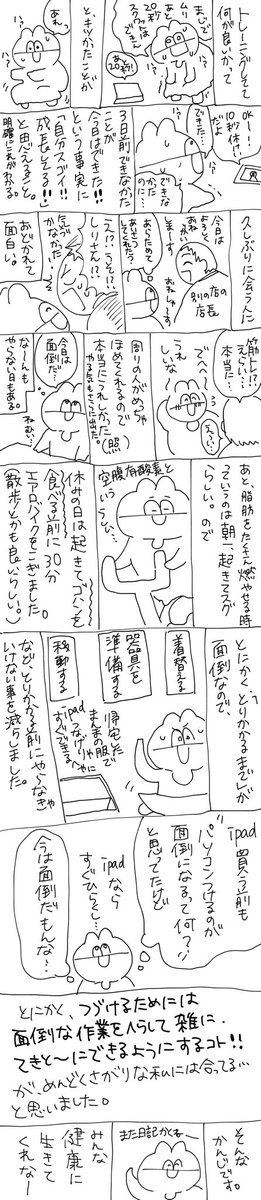 トレーニングしてて
何が良いかって
まじで
ムリ
20秒
スクワットは
しぬ
あと
20秒!
とキツかったことが
OKー
10秒休け
だよ
できた…
できな
かった
のに
3日前できなかった
ことが
今日はできた!!
という事実に
「自分スゴイ!!
成長してる!!」
と思えること。
明確にこれがわかる。
久しぶりに会う人に
今日は
よろしく
おねがい
しまーす
別の店の
店長
あらためて
あいさつして
どうしました?
え!?うそ!?
しりさん!?
気づ
かなかった!
おどかれて
面白い。
筋トレ!?
えらい…
本当…
えらい…
でへへー
うれ
しいな
周りの人がめちゃ
ほめてくれるので
本当にうれしかった(照)
やる気もさらに出た。
今日は
面倒だ…
ねむい…
なーんも
やらない日もある。
あと、脂肪をたくさん燃やせる時
っていうのは朝一、起きてスグ
らしい。ので
空腹有酸素と
いうらしい…
休みの日は起きてゴハンを
食べる前に30分
エアロバイクをこぎました。
(散歩とかも良いらしい。)
とにかく、とりかかるまでが
面倒なので、
着替える
器具を
準備する
移動する
帰宅して
まんまの服で
ipadつなげりゃ
すぐできる
などとりかかる前にやらなきゃ
いけない事を減らしました。
ipad買う前も
パソコンつけるのが
面倒になるって何?
と思ってたけど
ipadなら
すぐひらくし…
今は面倒だもんな…
とにかく、つづけるためには
面倒な作業をへらして雑に、
てきと〜にできるようにするコト!!
が、めんどくさがりな私には合ってる…
と思いました。
そんな
かんじです。
また日記かくねー
みんな
健康に
生きて
くれなー